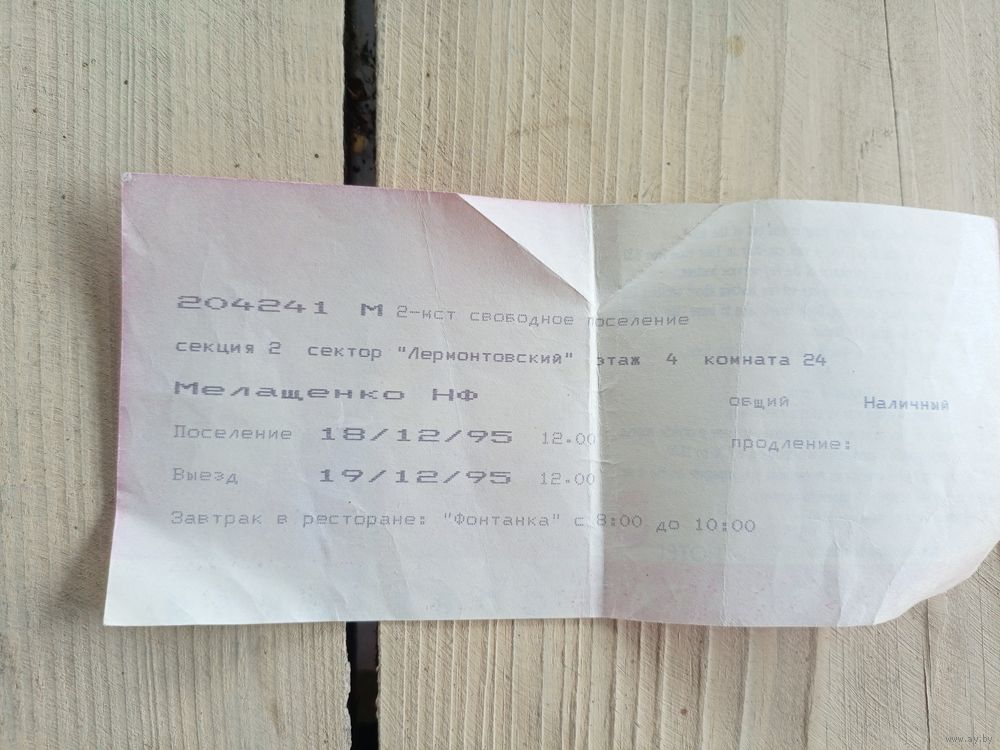 204241 М 2-мст свободное поселение
секция 2 сектор "Лермонтовский" этаж 4 комната 24
Мелащенко НФ общий Наличный
Поселение 18/12/95 12.00 продление:
Выезд 19/12/95 12.00
Завтрак в ресторане: "Фонтанка" с 8:00 до 10:00
www.ay.by